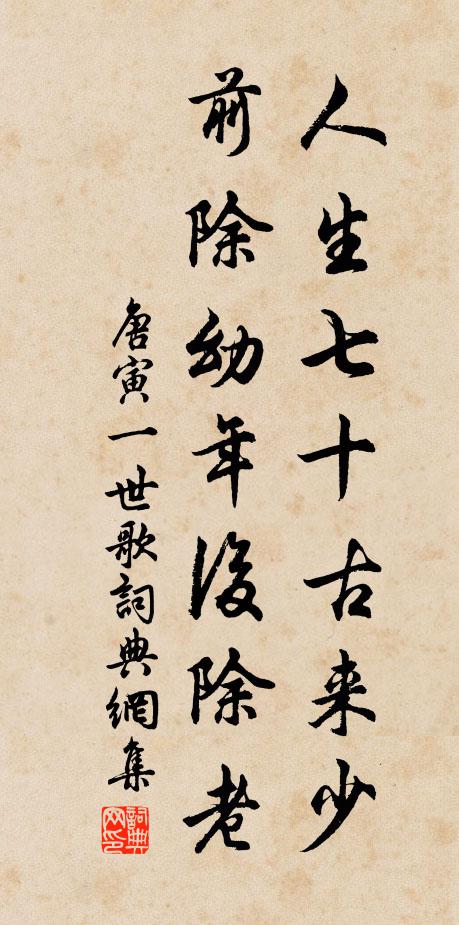 人生七十古来少
前除幼年後除老
唐寅一世歌詞典網集
詞典网印